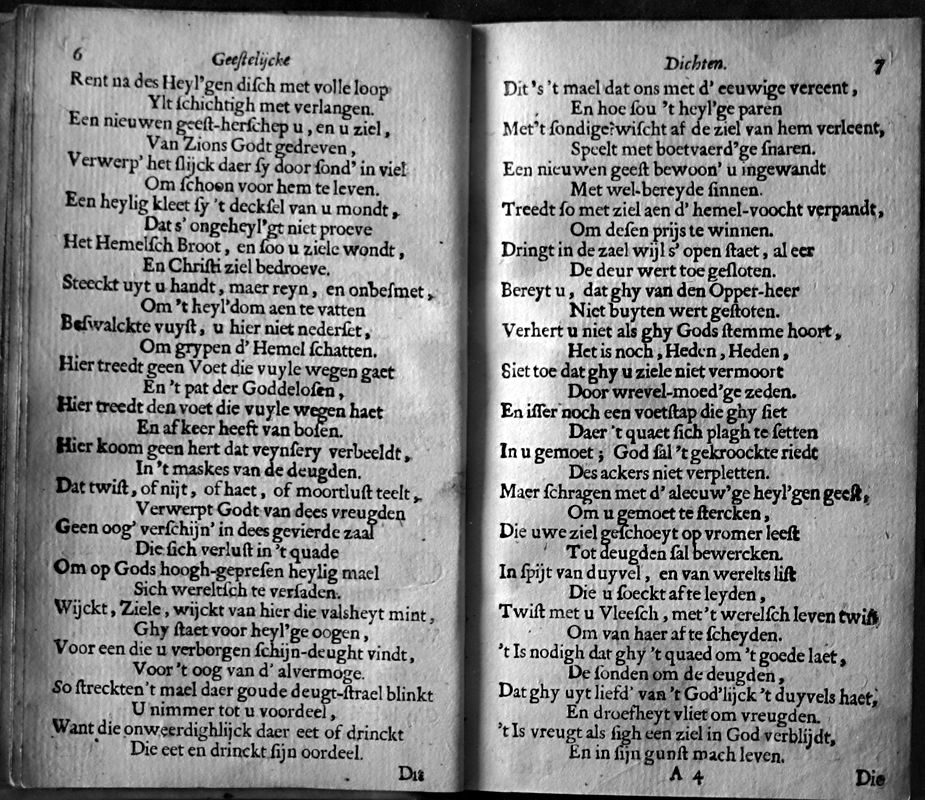 6 Geeſtelijcke
Rent na des Heyl'gen diſch met volle loop
Ylt ſchichtigh met verlangen.
Een nieuwen geeſt-herſchep u, en u ziel,
Van Zions Godt gedreven,
Verwerp' het ſlijck daer ſy door ſond' in viel
Om ſchoon voor hem te leven.
Een heylig kleet ſy 't deckſel van u mondt,
Dat s' ongeheyl'gt niet proeve
Het Hemelſch Broot, en ſoo u ziele wondt,
En Chriſti ziel bedroeve.
Steeckt uyt u handt, maer reyn, en onbeſmet,
Om 't heyl'dom aen te vatten
Beſwalckte vuyſt, u hier niet nederſet,
Om grypen d' Hemel ſchatten.
Hier treedt geen Voet die vuyle wegen gaet
En 't pat der Goddeloſen,
Hier treedt den voet die vuyle wegen haet
En afkeer heeft van boſen.
Hier koom geen hert dat veynſery verbeeldt,
In 't maskes van de deugden.
Dat twiſt, of nijt, of haet, of moortluſt teelt,
Verwerpt Godt van dees vreugden
Geen oog' verſchijn' in dees gevierde zaal
Die ſich verluſt in 't quade
Om op Gods hoogh-gepreſen heylig mael
Sich wereltſch te verſaden.
Wijckt, Ziele, wijckt van hier die valsheyt mint,
Ghy ſtaet voor heyl'ge oogen,
Voor een die u verborgen ſchijn-deught vindt,
Voor 't oog van d' alvermoge.
So ſtreckten't mael daer goude deugt-ſtrael blinkt
U nimmer tot u voordeel,
Want die onweerdighlijck daer eet of drinckt
Die eet en drinckt ſijn oordeel.
Dit
Dichten. 7
Dit 's 't mael dat ons met d' eeuwige vereent,
En hoe ſou 't heyl'ge paren
Met't ſondige? wiſcht af de ziel van hem verleent,
Speelt met boetvaerd'ge ſnaren.
Een nieuwen geeſt bewoon' u ingewandt
Met wel-bereyde ſinnen.
Treedt ſo met ziel aen d' hemel-voocht verpandt,
Om deſen prijs te winnen.
Dringt in de zael wijl s' open ſtaet, al eer
De deur wert toe geſloten.
Bereyt u, dat ghy van den Opper-heer
Niet buyten wert geſtoten.
Verhert u niet als ghy Gods ſtemme hoort,
Het is noch, Heden, Heden,
Siet toe dat ghy u ziele niet vermoort
Door wrevel-moed'ge zeden.
En iſſer noch een voetſtap die ghy ſiet
Daer 't quaet ſich plagh te ſetten
In u gemoet; God ſal 't gekroockte riedt
Des ackers niet verpletten.
Maer ſchragen met d' aleeuw'ge heyl'gen geeſt,
Om u gemoet te ſtercken,
Die uwe ziel geſchoeyt op vromer leeſt
Tot deugden ſal bewercken.
In ſpijt van duyvel, en van werelts liſt
Die u ſoeckt af te leyden,
Twiſt met u Vleeſch, met't werelſch leven twiſt,
Om van haer af te ſcheyden.
't Is nodigh dat ghy 't quaed om 't goede laet,
De ſonden om de deugden,
Dat ghy uyt liefd' van 't God'lijck 't duyvels haet,
En droefheyt vliet om vreugden.
't Is vreugt als ſigh een ziel in God verblijdt,
En in ſijn gunſt mach leven.
A 4 Die